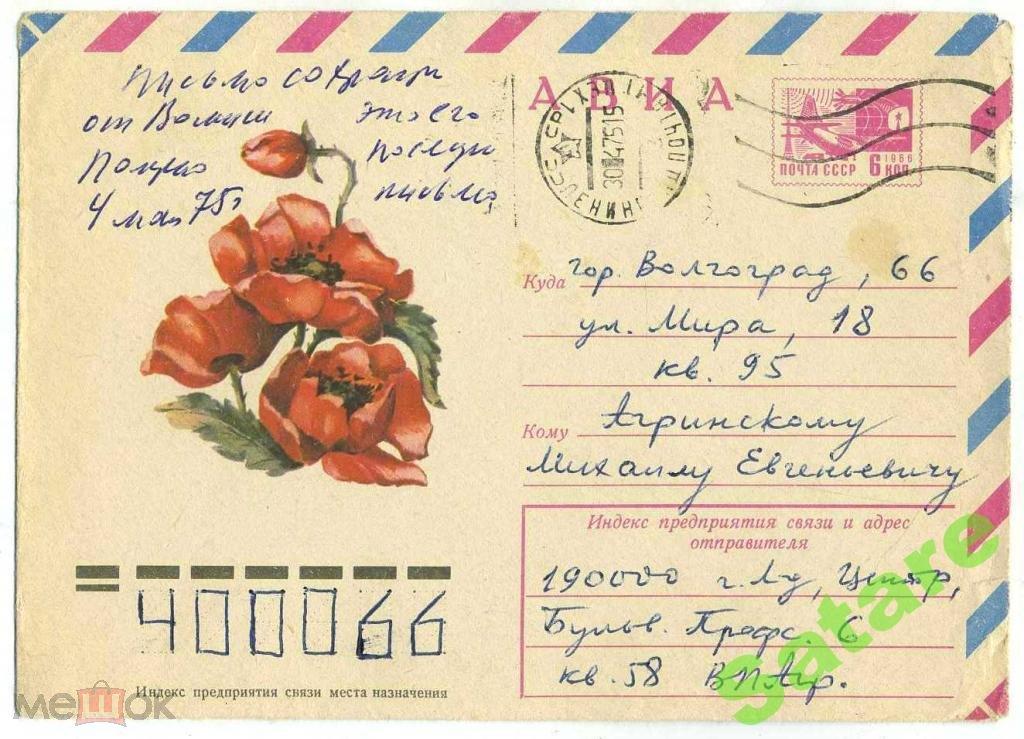 Письмо сохрани
от Вашии это его
Получ последн
4 мая 75г письмо
АВИА
30 4 75 15
ПОЧТА СССР 6 КОП.
1966
Куда гор. Волгоград, 66
ул. Мира, 18
кв. 95
Кому Агринскому
Михаилу Евгеньевичу
Индекс предприятия связи и адрес
отправителя
190000 г. Лд, Центр,
Бульв. Профс 6
кв. 58 В.П.Агр.
400066
Индекс предприятия связи места назначения
мешок
satare